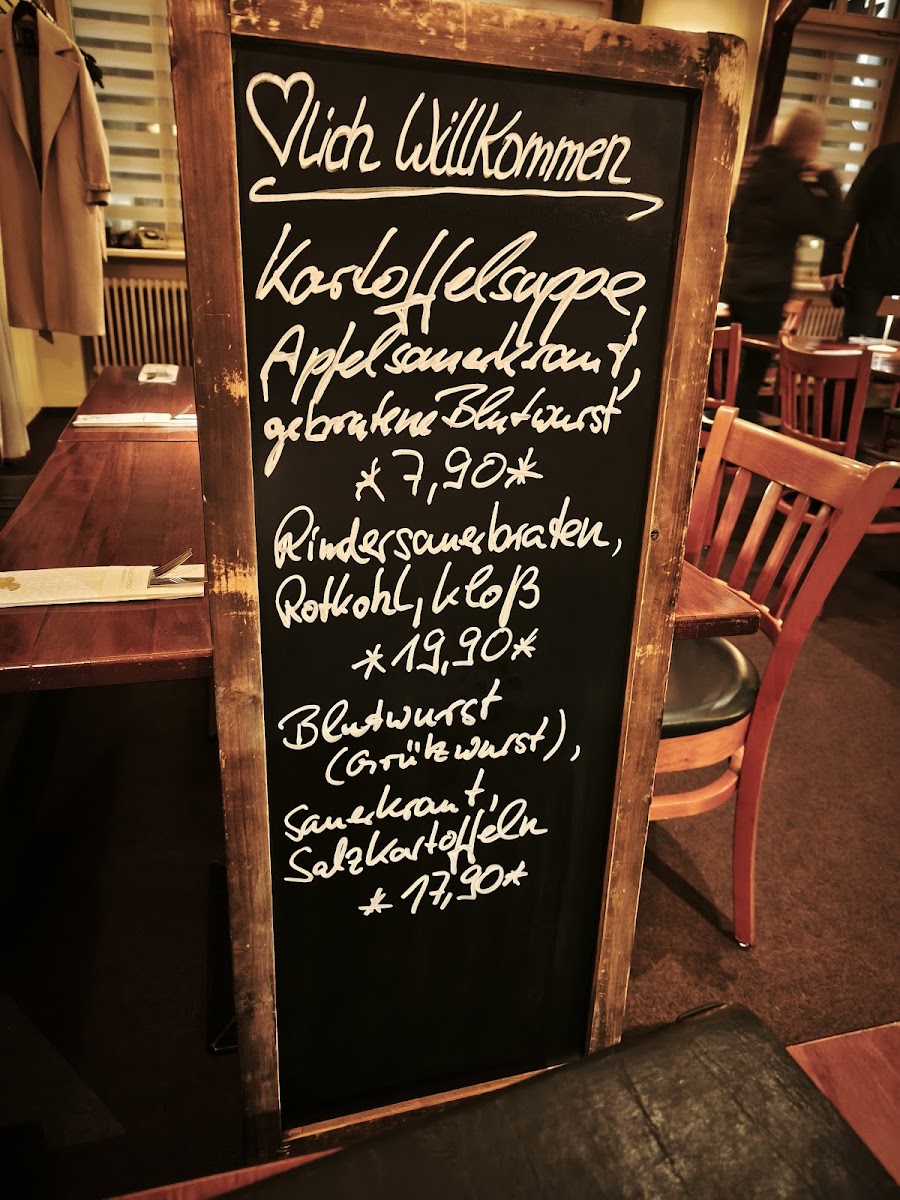 ♡lich Willkommen
Kartoffelsuppe,
Apfelsauerkraut,
gebratene Blutwurst
*7,90*
Rindersauerbraten,
Rotkohl, Kloß
*19,90*
Blutwurst
(Grützwurst),
Sauerkraut,
Salzkartoffeln
*17,90*